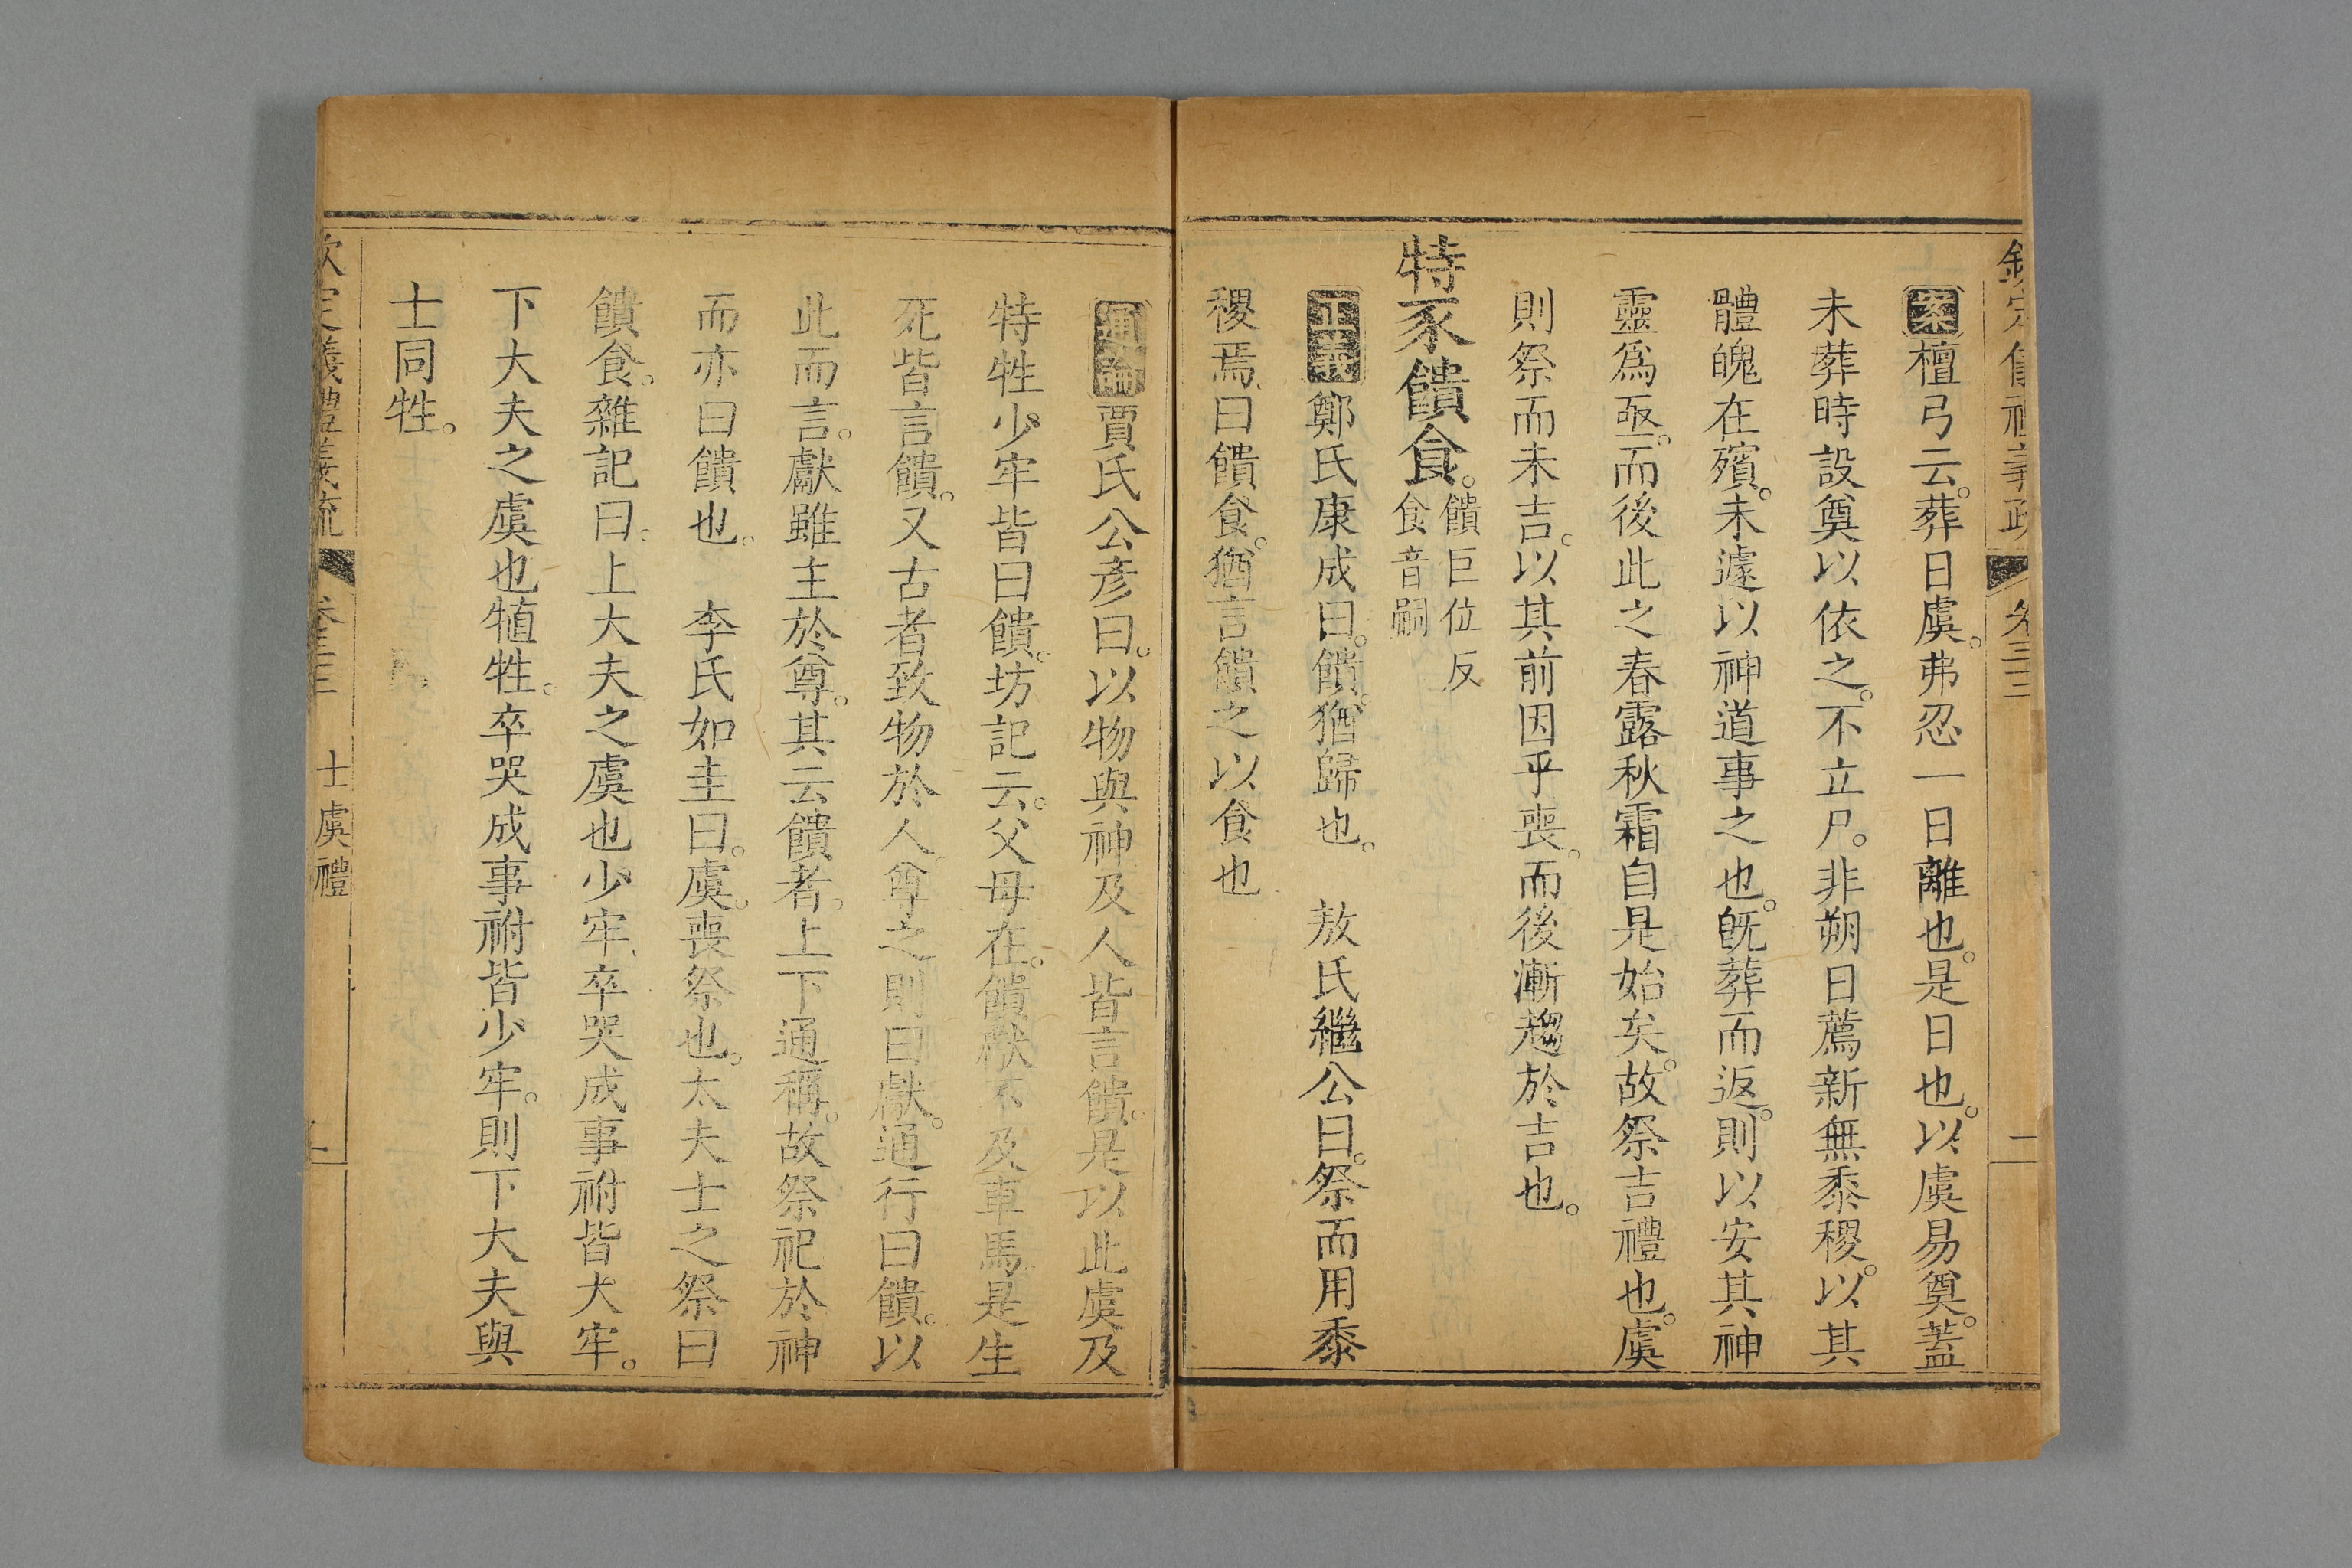 欽定儀禮義疏 卷三三 一
案檀弓云。葬日虞。弗忍一日離也。是日也。以虞易奠。蓋
未葬時設奠以依之。不立尸。非朔日薦新無黍稷。以其
體魄在殯。未遽以神道事之也。既葬而返。則以安其神
靈爲亟。而後此之春露秋霜自是始矣。故祭吉禮也。虞
則祭而未吉。以其前因乎喪。而後漸趨於吉也。
特豕饋食。饋巨位反
食音嗣
正義鄭氏康成曰。饋。猶歸也。 敖氏繼公曰。祭而用黍
稷焉、曰饋食。猶言饋之以食也
通論賈氏公彥曰。以物與神及人皆言饋。是以此虞及
特牲少牢皆曰饋。坊記云。父母在。饋獻不及車馬。是生
死皆言饋。又古者致物於人。尊之則曰獻。通行曰饋。以
此而言。獻雖主於尊。其云饋者。上下通稱。故祭祀於神
而亦曰饋也。 李氏如圭曰。虞。喪祭也。大夫士之祭曰
饋食。雜記曰。上大夫之虞也少牢、卒哭成事祔皆大牢。
下大夫之虞也犆牲。卒哭成事祔皆少牢。則下大夫與
士同牲。
欽定義禮義疏 卷三三 士虞禮